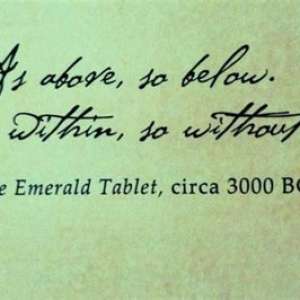 As above, so below.
within, so without
e Emerald Tablet, circa 3000 BC